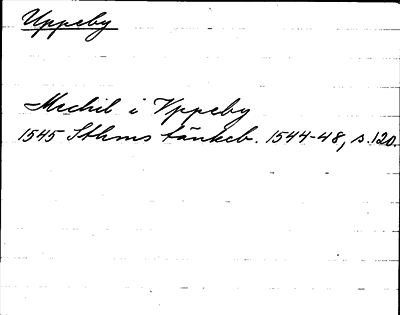 Uppeby
Mechil i Vppeby
1545 Sthms tänkeb. 1544-48, s.120.